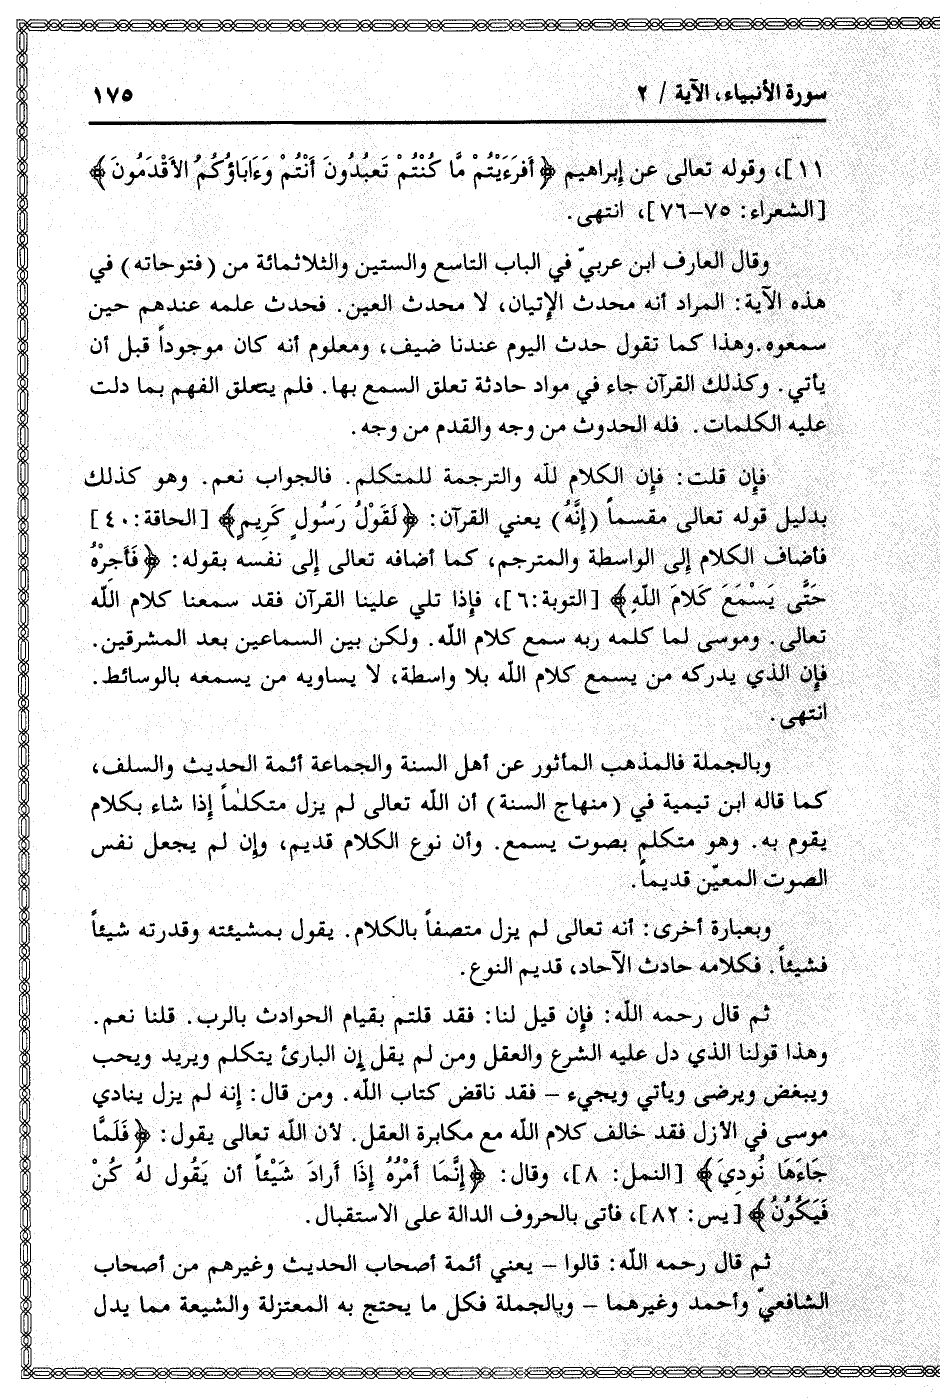 سورة الأنبياء، الآية / ٢
١٧٥
١١]، وقوله تعالى عن إبراهيم ﴿أَفَرَءَيْتُمْ مَّا كُنْتُمْ تَعبُدُونَ أَنْتُمْ وَءَابَاؤُكُمُ الأَقْدَمُونَ﴾
[الشعراء: ٧٥-٧٦]، انتهى.
وقال العارف ابن عربيّ في الباب التاسع والستين والثلاثمائة من (فتوحاته) في
هذه الآية: المراد أنه محدث الإتيان، لا محدث العين. فحدث علمه عندهم حين
سمعوه.وهذا كما تقول حدث اليوم عندنا ضيف، ومعلوم أنه كان موجوداً قبل أن
يأتي. وكذلك القرآن جاء في مواد حادثة تعلق السمع بها. فلم يتعلق الفهم بما دلت
عليه الكلمات. فله الحدوث من وجه والقدم من وجه.
فإن قلت: فإن الكلام للّه والترجمة للمتكلم. فالجواب نعم. وهو كذلك
بدليل قوله تعالى مقسماً (إنَّهُ) يعني القرآن: ﴿لَقَوْلُ رَسُولٍ كَرِيمٍ﴾ [الحاقة:٤٠]
فأضاف الكلام إلى الواسطة والمترجم، كما أضافه تعالى إلى نفسه بقوله: ﴿فَأَجِرْهُ
حَتَّى يَسْمَعَ كَلَامَ اللَّهِ﴾ [التوبة:٦]، فإذا تلي علينا القرآن فقد سمعنا كلام اللّه
تعالى. وموسى لما كلمه ربه سمع كلام اللّه. ولكن بين السماعين بعد المشرقين.
فإن الذي يدركه من يسمع كلام اللّه بلا واسطة، لا يساويه من يسمعه بالوسائط.
انتهى.
وبالجملة فالمذهب المأثور عن أهل السنة والجماعة أئمة الحديث والسلف،
كما قاله ابن تيمية في (منهاج السنة) أن اللّه تعالى لم يزل متكلماً إذا شاء بكلام
يقوم به. وهو متكلم بصوت يسمع. وأن نوع الكلام قديم، وإن لم يجعل نفس
الصوت المعيّن قديماً.
وبعبارة أخرى: أنه تعالى لم يزل متصفاً بالكلام. يقول بمشيئته وقدرته شيئاً
فشيئاً. فكلامه حادث الآحاد، قديم النوع.
ثم قال رحمه اللّه: فإن قيل لنا: فقد قلتم بقيام الحوادث بالرب. قلنا نعم.
وهذا قولنا الذي دل عليه الشرع والعقل ومن لم يقل إن البارئ يتكلم ويريد ويحب
ويبغض ويرضى ويأتي ويجيء – فقد ناقض كتاب اللّه. ومن قال: إنه لم يزل ينادي
موسى في الأزل فقد خالف كلام اللّه مع مكابرة العقل. لأن اللّه تعالى يقول: ﴿فَلَمَّا
جَاءَهَا نُودِيَ﴾ [النمل: ٨]، وقال: ﴿إِنَّمَا أَمْرُهُ إِذَا أَرادَ شَيْئاً أن يَقُول لهُ كُنْ
فَيَكُوُنُ﴾ [يس: ٨٢]، فأتى بالحروف الدالة على الاستقبال.
ثم قال رحمه اللّه: قالوا – يعني أئمة أصحاب الحديث وغيرهم من أصحاب
الشافعيّ وأحمد وغيرهما – وبالجملة فكل ما يحتج به المعتزلة والشيعة مما يدل